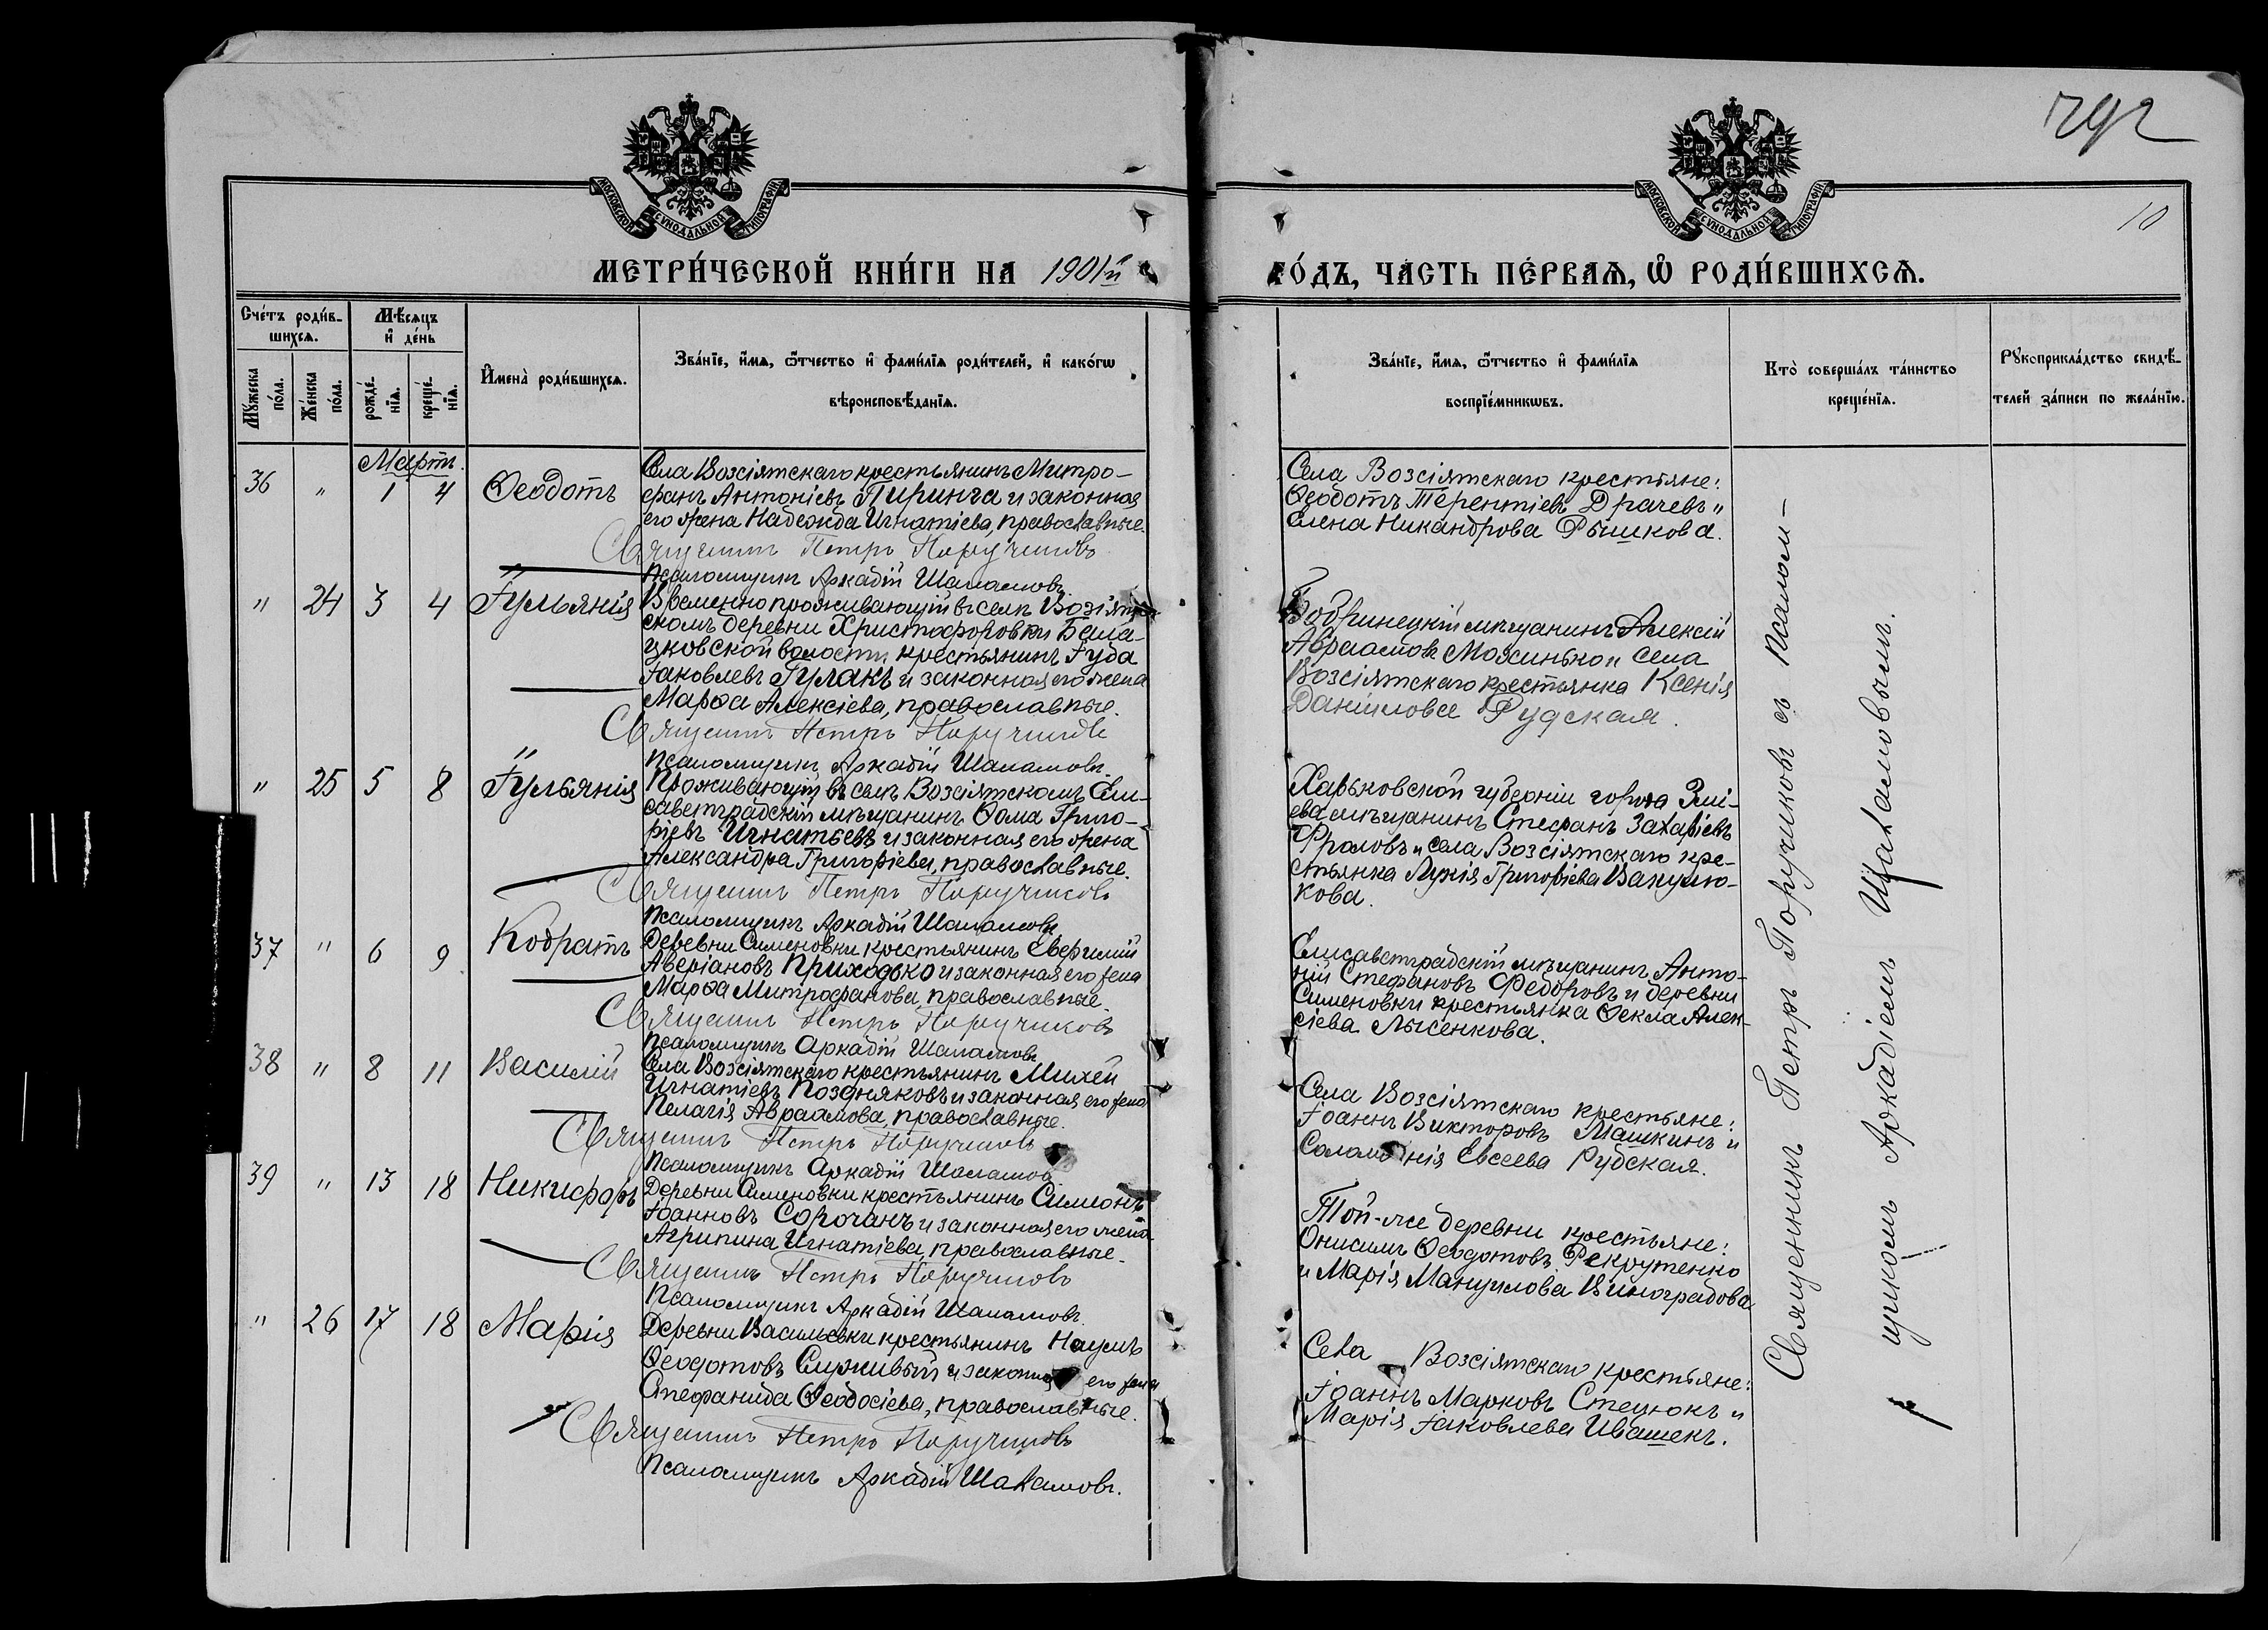 792
10
МОСКОВСКОЙ СѴНОДАЛЬНОЙ ТИПОГРАФІИ
МОСКОВСКОЙ СѴНОДАЛЬНОЙ ТИПОГРАФІИ
МЕТРИ́ЧЕСКОЙ КНИ́ГИ НА 1901й
ГО́ДЪ, ЧА́СТЬ ПЕ́РВАѦ, Ѡ҆ РОДИ́ВШИХСѦ.
Сче́тъ роди́в-
шихсѧ.
Мѣ́сѧцъ
и҆ де́нь
Мꙋ́жеска
по́ла.
Же́нска
по́ла.
рожде́-
нїѧ.
креще́-
нїѧ.
И҆мена̀ роди́вшихсѧ.
Зва́нїе, и҆́мѧ, ѻ҆́тчество и҆ фами́лїѧ роди́телей, и҆ како́гѡ
вѣроисповѣ́данїѧ.
Зва́нїе, и҆́мѧ, ѻ҆́тчество и҆ фами́лїѧ
воспрїе́мникѡвъ.
Кто̀ соверша́лъ та́инство
креще́нїѧ.
Рꙋкоприкла́дство свидѣ́-
телей за́писи по жела́нїю.
Мартъ.
36 " 1 4 Ѳеодотъ
Села Возсіятскаго крестьянинъ Митро-
фанъ Антоніевъ Пиринга и законная
его жена Надежда Игнатіева, православные.
Священникъ Петръ Поручиковъ
Псаломщикъ Аркадій Шаламовъ.
Села Возсіятскаго крестьяне:
Ѳеодотъ Терентіевъ Драчевъ и
Елена Никандрова Рышкова.
" 24 3 4 Іульянія
Временно проживающій въ селѣ Возсіят-
скомъ деревни Христофоровки Бала-
цковской волости, крестьянинъ Іуда
Іаковлевъ Гулакъ и законная его жена
Марѳа Алексіева, православные.
Священникъ Петръ Поручиковъ
Псаломщикъ Аркадій Шаламовъ.
Бобринецкій мѣщанинъ Алексій
Авраамовъ Можинько и села
Возсіятскаго крестьянка Ксенія
Даніилова Рудская.
" 25 5 8 Іульянія
Проживающій въ селѣ Возсіятскомъ Ели-
саветградскій мѣщанинъ Ѳома Григо-
ріевъ Игнатьевъ и законная его жена
Александра Григоріева, православные.
Священникъ Петръ Поручиковъ
Псаломщикъ Аркадій Шаламовъ
Харьковской губерніи города Змі-
ева мѣщанинъ Стефанъ Захаріевъ
Фроловъ и села Возсіятскаго кре-
стьянка Лукія Григоріева Вакулю-
кова.
37 " 6 9 Кодратъ
Деревни Сименовки крестьянинъ Евфимій
Аверіановъ Приходько и законная его жена
Марѳа Митрофанова, православные.
Священникъ Петръ Поручиковъ
Псаломщикъ Аркадій Шаламовъ
Елисаветградскій мѣщанинъ Анто-
ній Стефановъ Федоровъ и деревни
Сименовки крестьянка Ѳекла Алек-
сіева Лысенкова.
38 " 8 11 Василій
Села Возсіятскаго крестьянинъ Михей
Игнатіевъ Поздняковъ и законная его жена
Пелагія Авраамова, православные.
Священникъ Петръ Поручиковъ
Псаломщикъ Аркадій Шаламовъ
Села Возсіятскаго крестьяне:
Іоаннъ Викторовъ Машкинъ и
Соломонія Евсеева Рудская.
39 " 13 18 Никифоръ
Деревни Сименовки крестьянинъ Симеонъ
Іоанновъ Сорочанъ и законная его жена
Агрипина Игнатіева, православные.
Священникъ Петръ Поручиковъ
Псаломщикъ Аркадій Шаламовъ.
Той-же деревни крестьяне:
Онисимъ Ѳеодотовъ Рекрутенко
и Марія Мануилова Виноградова
" 26 17 18 Марія
Деревни Васильевки крестьянинъ Наумъ
Ѳеодотовъ Сиживый и законная его жена
Стефанида Ѳеодосіева, православные.
Священникъ Петръ Поручиковъ
Псаломщикъ Аркадій Шаламовъ.
Села Возсіятскаго крестьяне:
Іоаннъ Марковъ Стецюкъ и
Марія Іаковлева Ивашекъ.
Священникъ Петръ Поручиковъ съ псалом-
щикомъ Аркадіемъ Шаламовымъ.